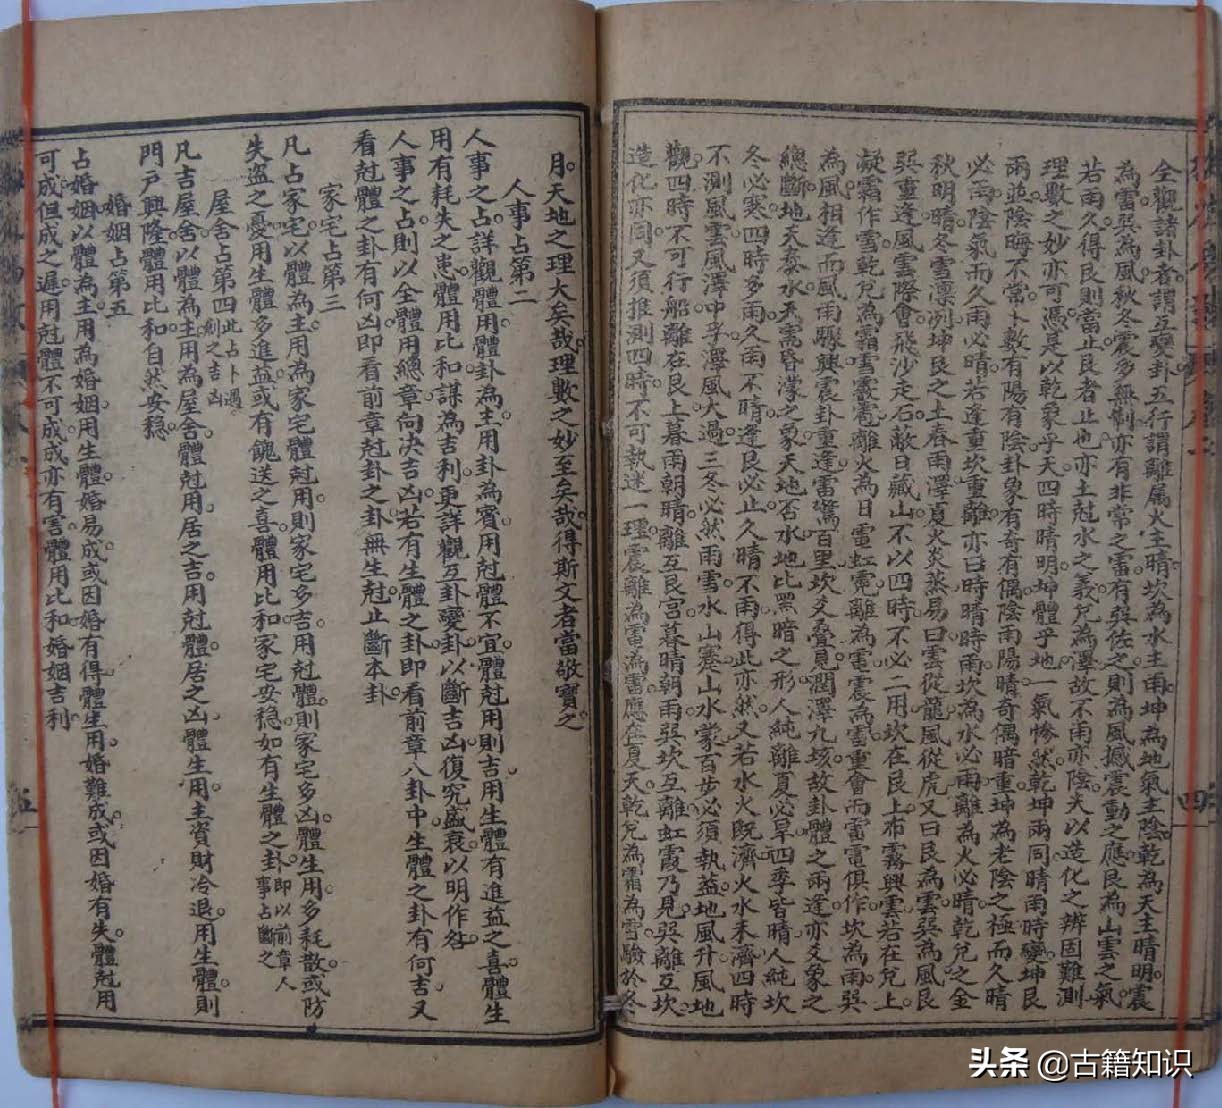 全觀諸卦者謂互變卦五行謂離属火主晴坎為水主雨坤為地氣主陰乾為天主晴明震
為雷巽為風秋冬震多無制亦有非常之雷有巽佐之則為風撼震動之應艮為山雲之氣
若雨久得艮則當止艮者止也亦土尅水之義兌為澤故不雨亦陰夫以造化之辨固難測
理數之妙亦可憑是以乾象乎天四時晴明坤體乎地一氣慘然乾坤兩同晴雨時變坤艮
兩並陰晦不常卜數有陽有陰卦象有奇有偶陰雨陽晴奇偶暗重坤為老陰之極而久晴
必雨陰氣而久雨必晴若逢重坎重離亦曰時晴時雨坎為水必雨離為火必晴乾兌之金
秋明晴冬雪凛冽坤艮之土春雨澤夏火炎蒸易曰雲從龍風從虎又曰艮為雲巽為風艮
巽重逢風雲際會飛沙走石蔽日藏山不以四時不必二用坎在艮上布霧興雲若在兌上
凝霜作雪乾兌為霜雪霰雹離火為日電虹霓離為電震為雷重會而雷電俱作坎為雨巽
為風相逢而風雨驟興震卦重逢雷驚百里坎爻疊見潤澤九垓故卦體之兩逢亦爻象之
總斷地天泰水天需昏濛之象天地否水地比黑暗之形人純離夏必旱四季皆晴人純坎
冬必寒四時多雨久雨不晴逢艮必止久晴不雨得此亦然又若水火既濟火水未濟四時
不測風雲風澤中孚澤風大過三冬必然雨雪水山蹇山水蒙百步必須執蓋地風升風地
觀四時不可行船離在艮上暮雨朝晴離互艮宮暮晴朝雨巽坎互離虹霞乃見巽離互坎
造化亦同又須推測四時不可執迷一理震離為電為雷應在夏天乾兌為霜為雪驗於冬
四
月天地之理大矣哉理數之妙至矣哉得斯文者當敬寶之
人事占第二
人事之占詳觀體用體卦為主用卦為賓用尅體不宜體尅用則吉用生體有進益之喜體生
用有耗失之患體用比和謀為吉利更詳觀互卦變卦以斷吉凶復究盛衰以明作咎
人事之占則以全體用總章向决吉凶若有生體之卦即看前章八卦中生體之卦有何吉又
看尅體之卦有何凶即看前章尅卦之卦無生尅止斷本卦
家宅占第三
凡占家宅以體為主用為家宅體尅用則家宅多吉用尅體則家宅多凶體生用多耗散或防
失盗之憂用生體多進益或有餽送之喜體用比和家宅安穏如有生體之卦即以前章人事占斷之
屋舍占第四此占卜遇創之吉凶
凡吉屋舍以體為主用為屋舍體尅用居之吉用尅體居之凶體生用主資財冷退用生體則
門戸興隆體用比和自然安穏
婚姻占第五
占婚姻以體為主用為婚姻用生體婚易成或因婚有得體生用婚難成或因婚有失體尅用
可成但成之遲用尅體不可成成亦有害體用比和婚姻吉利
五
头条 @古籍知识